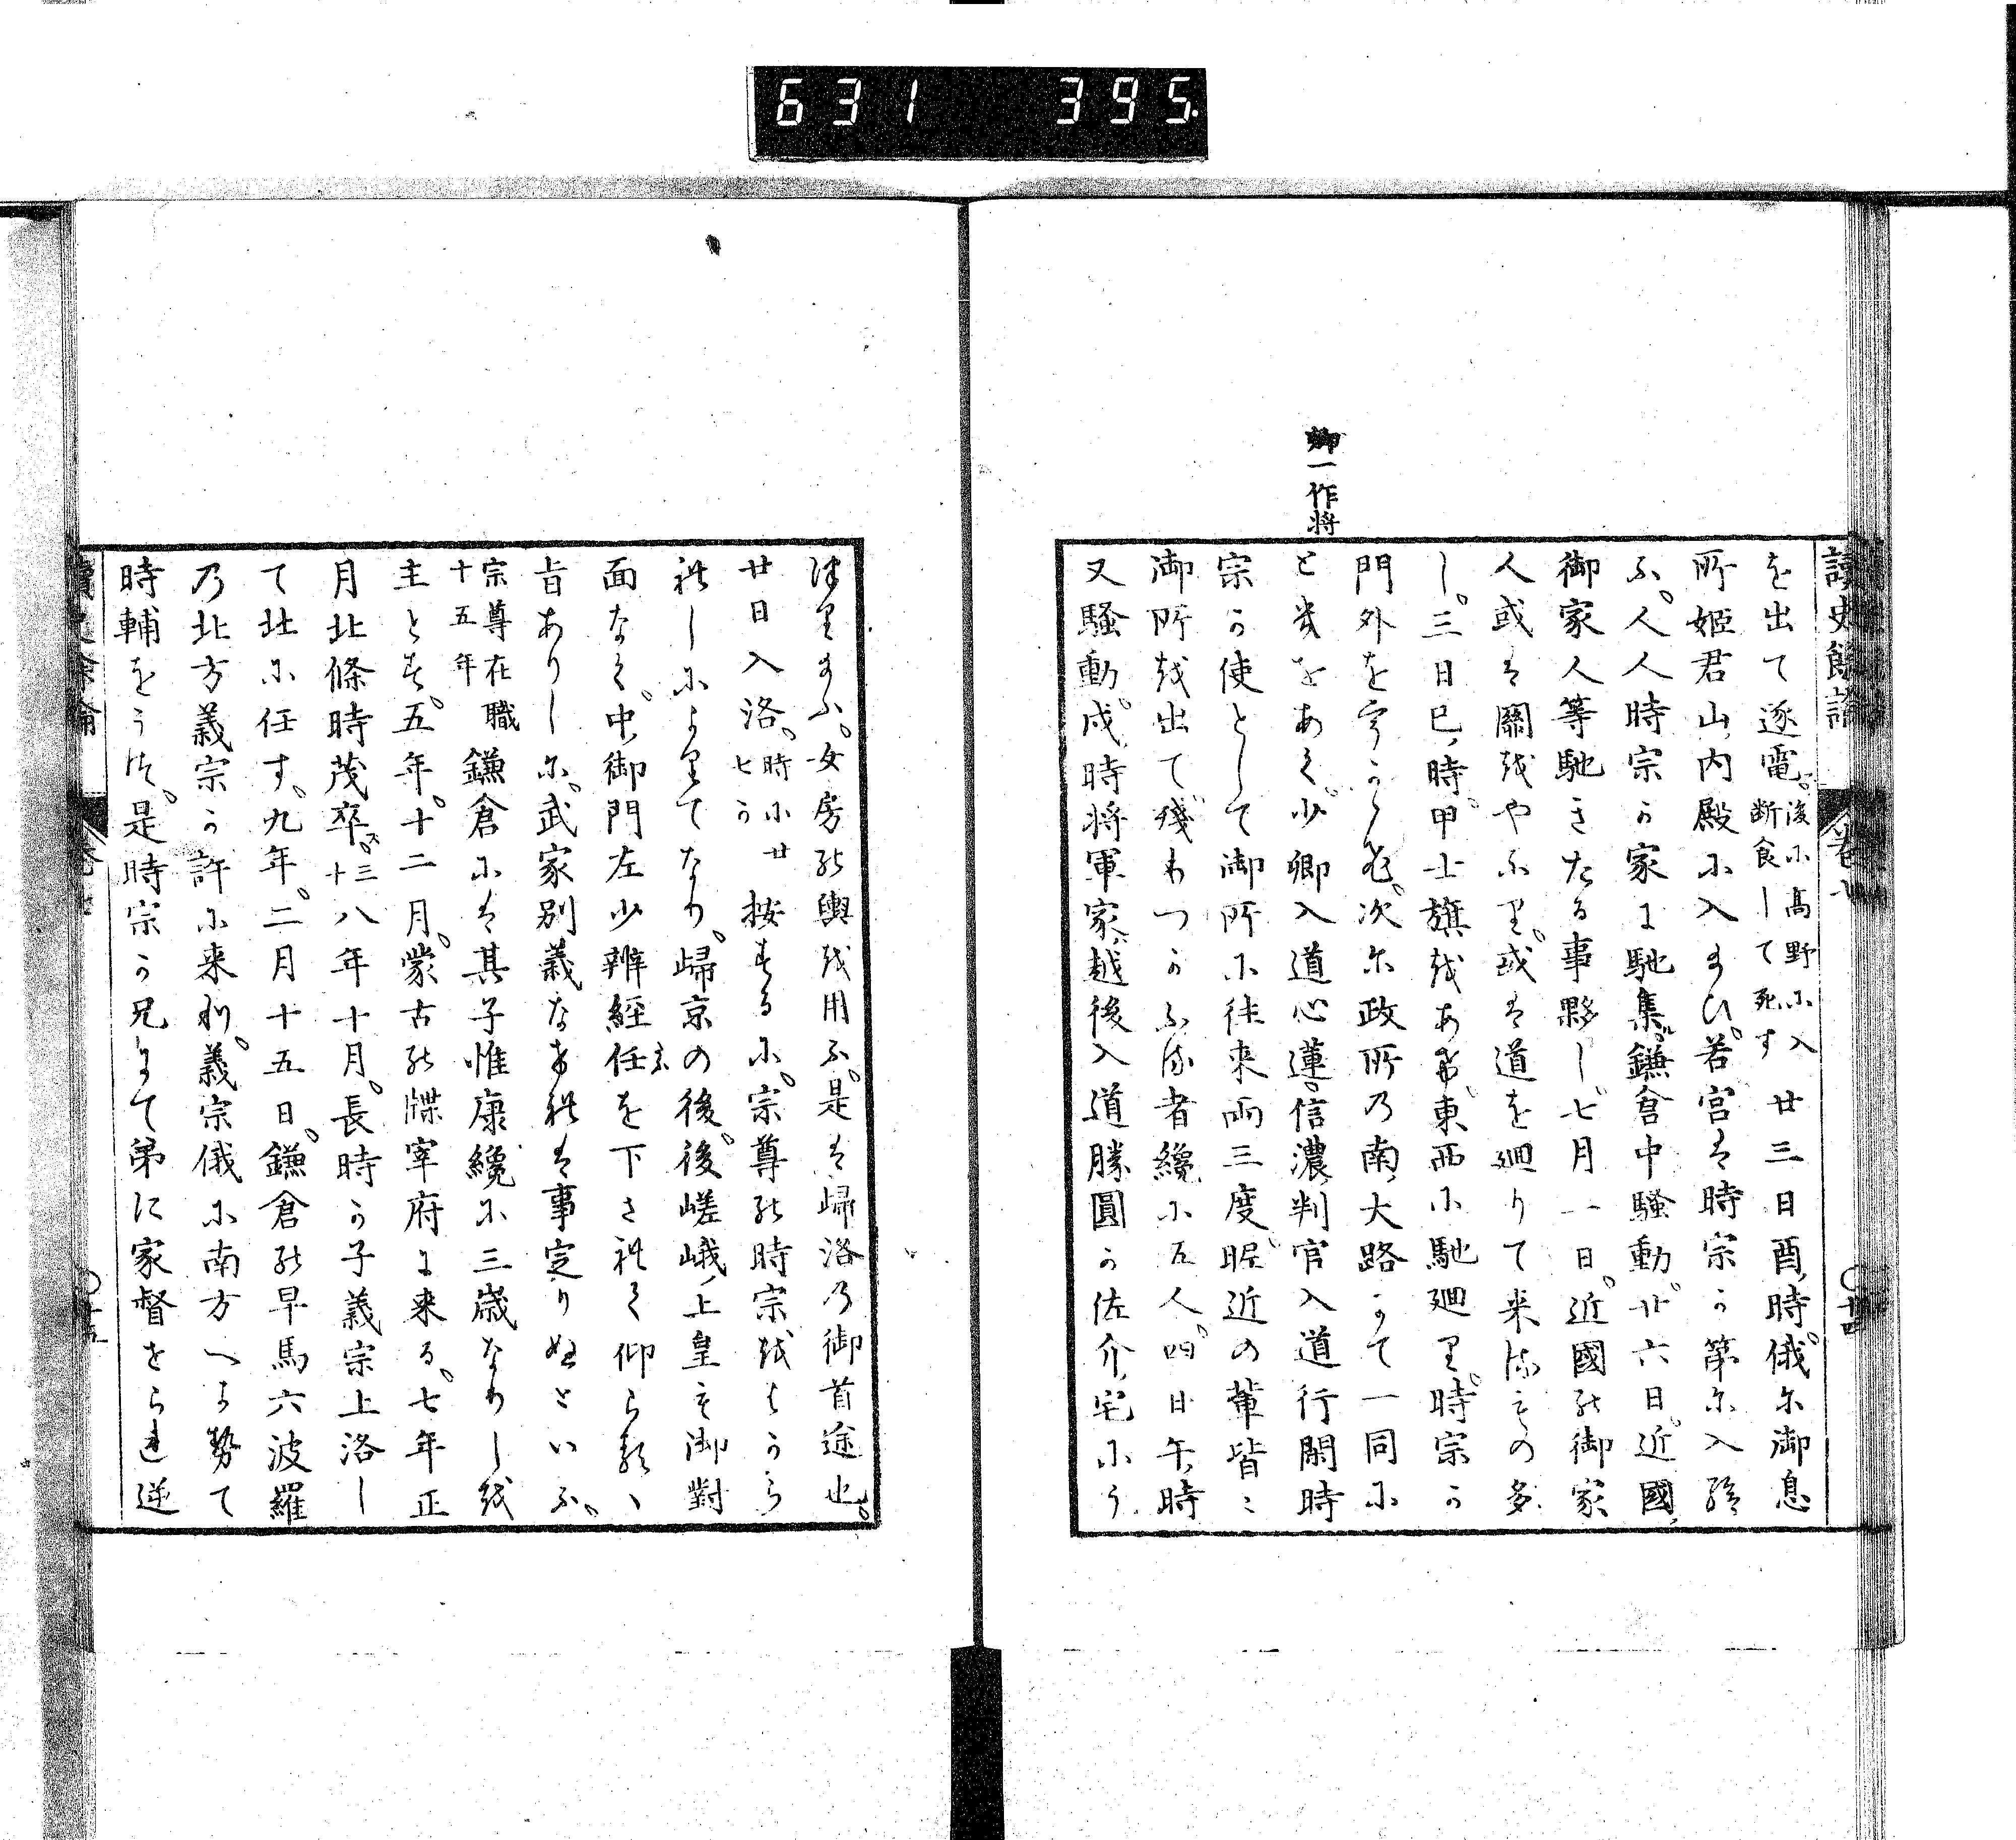 631 395.
讀史餘論 卷七 〇十四
を出て逐電。後小高野小入
断食して死す
廿三日酉,時俄尓御息
所姫君山,内殿小入まひ。若宮は時宗か第尓入給
ふ。人人時宗か家に馳集。鎌倉中騒動。廿六日。近國,
御家人等馳きたる事夥し。七月一日。近國能御家
人或は關越やふり。或は道を廻りて来流もの多
し。三日巳,時。甲士旗越あ希。東西小馳廻り。時宗か
門外を
次尓政所乃南,大路にて一同小
と
をあく。少卿入道心蓮。信濃,判官入道行開時
宗か使として御所小往来両三度。昵近の輩皆ミ
御所越出て殘わつかふ流者纔小五人。四日午,時
又騒動。戌,時将軍家。越後入道勝圓か佐介,宅小う
卿一作将
津りまふ。女房能輿越用ふ。是は歸洛乃御首途也。
廿日入洛。時小廿
七か
按するに。宗尊能時宗越はから
礼しによりてなり。歸京の後。後嵯峨,上皇も御對
面なく。中,御門左少辨經任を下さ礼く仰ら類ヽ
旨ありし尓。武家別義なき礼は事定りぬといふ。
宗尊在職
十五年
鎌倉小は其子惟康纔小三歳なりし越
主とす。五年。十二月。蒙古能牒宰府に来る。七年正
月北條時茂卒ス。三
十
八年十月。長時か子義宗上洛し
て北小任す。九年。二月十五日。鎌倉能早馬六波羅
乃北方義宗か許小来利。義宗俄小南方へよ勢て
時輔をうつ。是時宗か兄にて弟に家督をられ逆
讀史餘論 卷七 〇十五